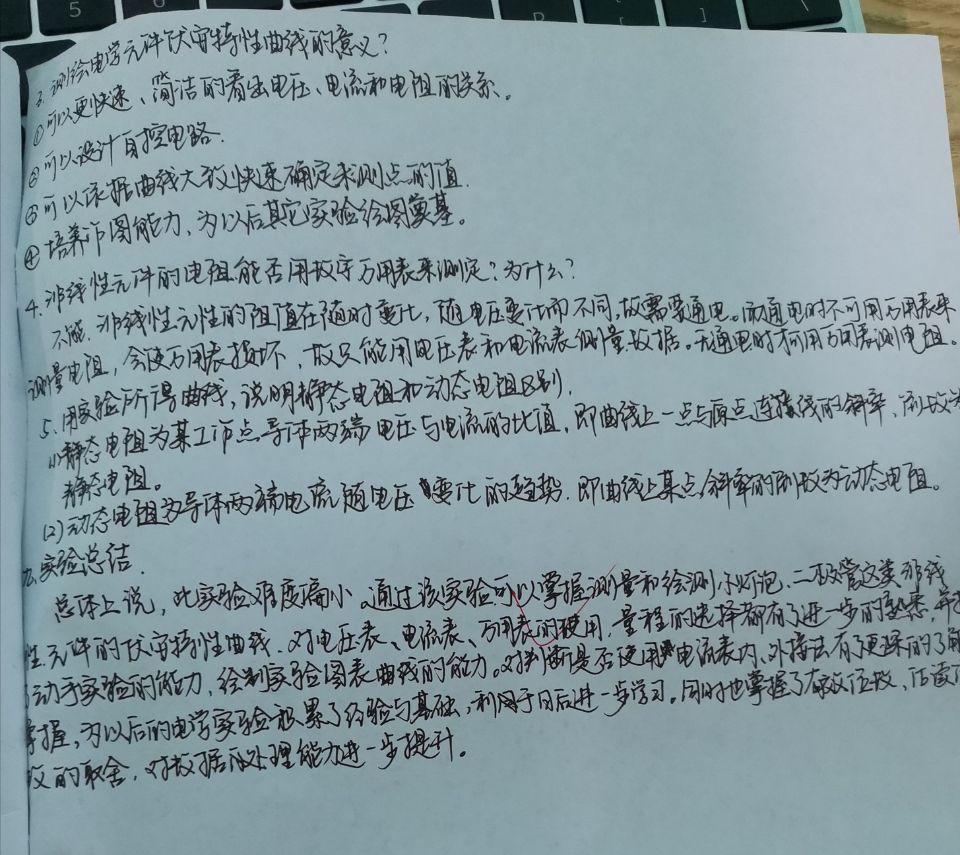 5
6
P
[
]
\
3. 测绘电学元件伏安特性曲线的意义?
①可以更快速、简洁的看出电压、电流和电阻的关系。
②可以设计自控电路.
③可以依据曲线大致快速确定未测点的值.
④培养作图能力,为以后其它实验绘图奠基。
4. 非线性元件的电阻能否用数字万用表来测定?为什么?
不能.非线性元性的阻值在随时变化,随电压变化而不同,故需要通电。而通电时不可用万用表来
测量电阻,会使万用表损坏,故只能用电压表和电流表测量数据。无通电时可用万用表测电阻。
5. 用实验所得曲线,说明静态电阻和动态电阻区别.
(1)静态电阻为某工作点导体两端电压与电流的比值,即曲线上一点与原点连接线的斜率、倒数为
静态电阻。
(2)动态电阻为导体两端电流随电压变化的趋势.即曲线上某点斜率的倒数为动态电阻。
九.实验总结.
总体上说,此实验难度偏小.通过该实验可以掌握测量和绘测小灯泡、二极管这类非线
性元件的伏安特性曲线.对电压表、电流表、万用表的使用,量程的选择都有了进一步的熟悉,并
了动手实验的能力,绘制实验图表曲线的能力。对判断是否使用电流表内、外接法有了更深的了解
掌握,为以后的电学实验积累了经验与基础,利用于日后进一步学习。同时也掌握了有效位数,估读位
数的取舍,对数据的处理能力进一步提升。